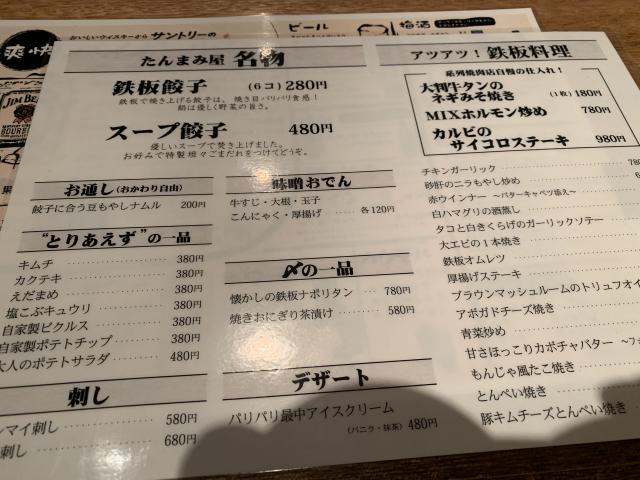 おいしいウィスキーから サントリーの
爽快
JIM BEAM
ビール
梅酒
たんまみ屋 名物
鉄板餃子 (6コ) 280円
鉄板で焼き上げる餃子は、焼き目パリパリ食感！
餡は優しく野菜の旨さ。
スープ餃子 480円
優しいスープで焚き上げました。
お好みで特製坦々ごまだれをつけてどうぞ。
お通し (おかわり自由)
餃子に合う豆もやしナムル 200円
“とりあえず”の一品
キムチ 380円
カクテキ 380円
えだまめ 380円
塩こぶキュウリ 380円
自家製ピクルス 380円
自家製ポテトチップ 380円
大人のポテトサラダ 480円
刺し
ンマイ刺し 580円
刺し 680円
味噌おでん
牛すじ・大根・玉子
こんにゃく・厚揚げ 各120円
〆の一品
懐かしの鉄板ナポリタン 780円
焼きおにぎり茶漬け 580円
デザート
パリパリ最中アイスクリーム
(バニラ・抹茶) 480円
アツアツ！鉄板料理
系列焼肉店自慢の仕入れ！
大判牛タンの
ネギみそ焼き (1枚) 180円
MIXホルモン炒め 780円
カルビの
サイコロステーキ 980円
チキンガーリック 780
砂肝のニラもやし炒め
赤ウインナー ～バターキャベツ添え～
白ハマグリの酒蒸し
タコと白きくらげのガーリックソテー
大エビの1本焼き
鉄板オムレツ
厚揚げステーキ
ブラウンマッシュルームのトリュフオイ
アボガドチーズ焼き
青菜炒め
甘さほっこりカボチャバター
もんじゃ風たこ焼き
とんぺい焼き
豚キムチーズとんぺい焼き